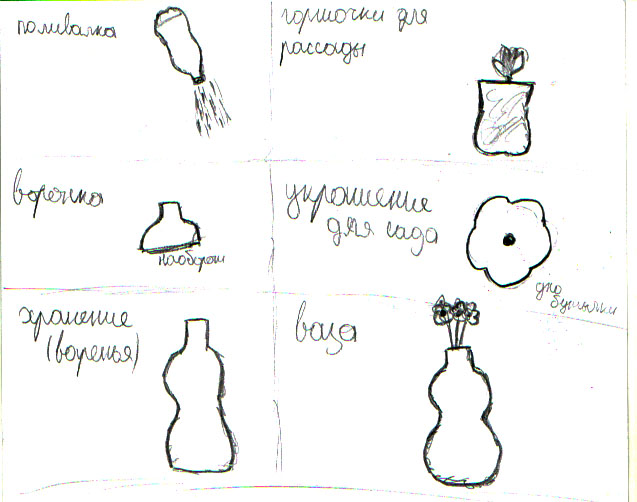 поливалка
горшочки для
рассады
воронка
наоборот
украшение
для сада
дно
бутылки
хранение
(варенья)
ваза